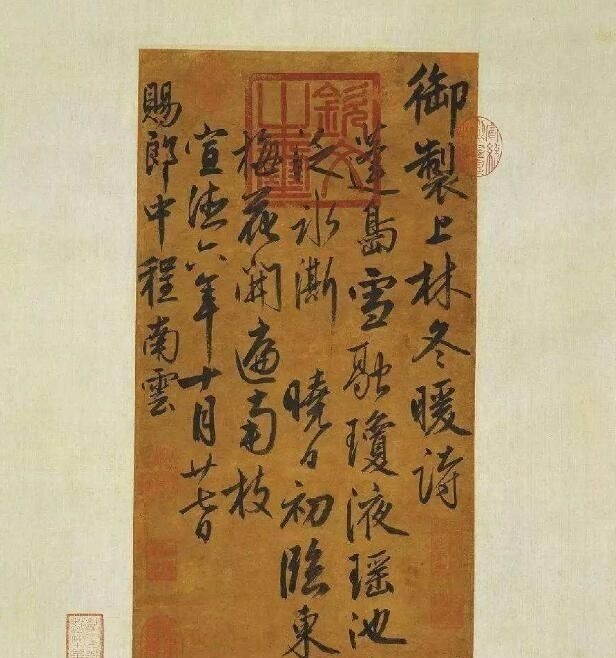 御製上林冬暖詩
蓬島雪融瓊液瑶池
泛冰澌 曉日初臨東
梅花開遍南枝
宣德六年十月廿七日
賜郎中程南雲
欽文之璽